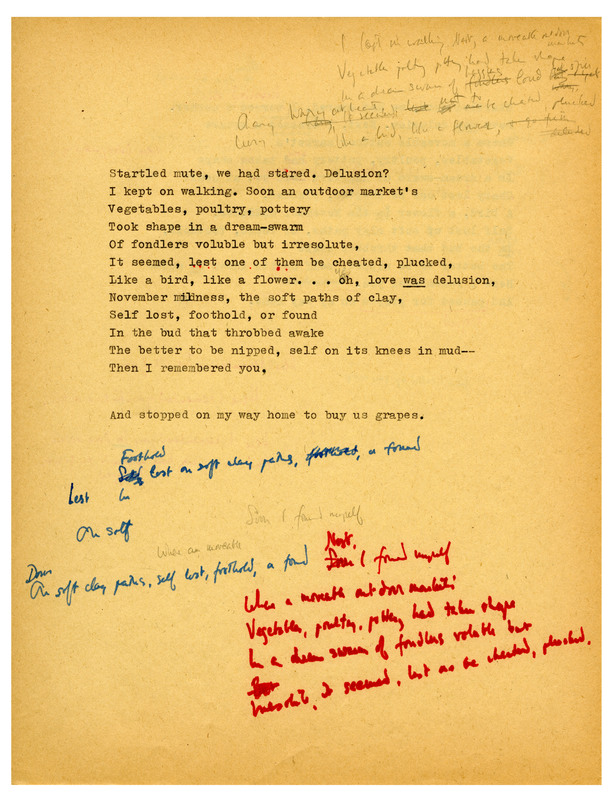 I kept on walking. Next, a moveable outdoor
market's
Vegetables poultry pottery had taken shape
In a dream swarm of fondlers loud
it seemed, be cheated, plucked
like a bird, like a flower,
Startled mute, we had stared. Delusion?
I kept on walking. Soon an outdoor market's
Vegetables, poultry, pottery
Took shape in a dream-swarm
Of fondlers voluble but irresolute,
It seemed, lest one of them be cheated, plucked,
Like a bird, like a flower. . . oh, love was delusion,
yes
November mildness, the soft paths of clay,
Self lost, foothold, or found
In the bud that throbbed awake
The better to be nipped, self on its knees in mud--
Then I remembered you,
And stopped on my way home to buy us grapes.
Foothold
Self lost on soft clay paths, foothold, or found
Lest In
On soft
Soon I found myself
When a moveable
Down
On soft clay paths, self lost, foothold, or found
Next,
Down I found myself
Where a moveable outdoor market's
Vegetables, poultry, pottery had taken shape
In a dream swarm of fondlers voluble but
Irresolute, it seemed, lest one be cheated, plucked.